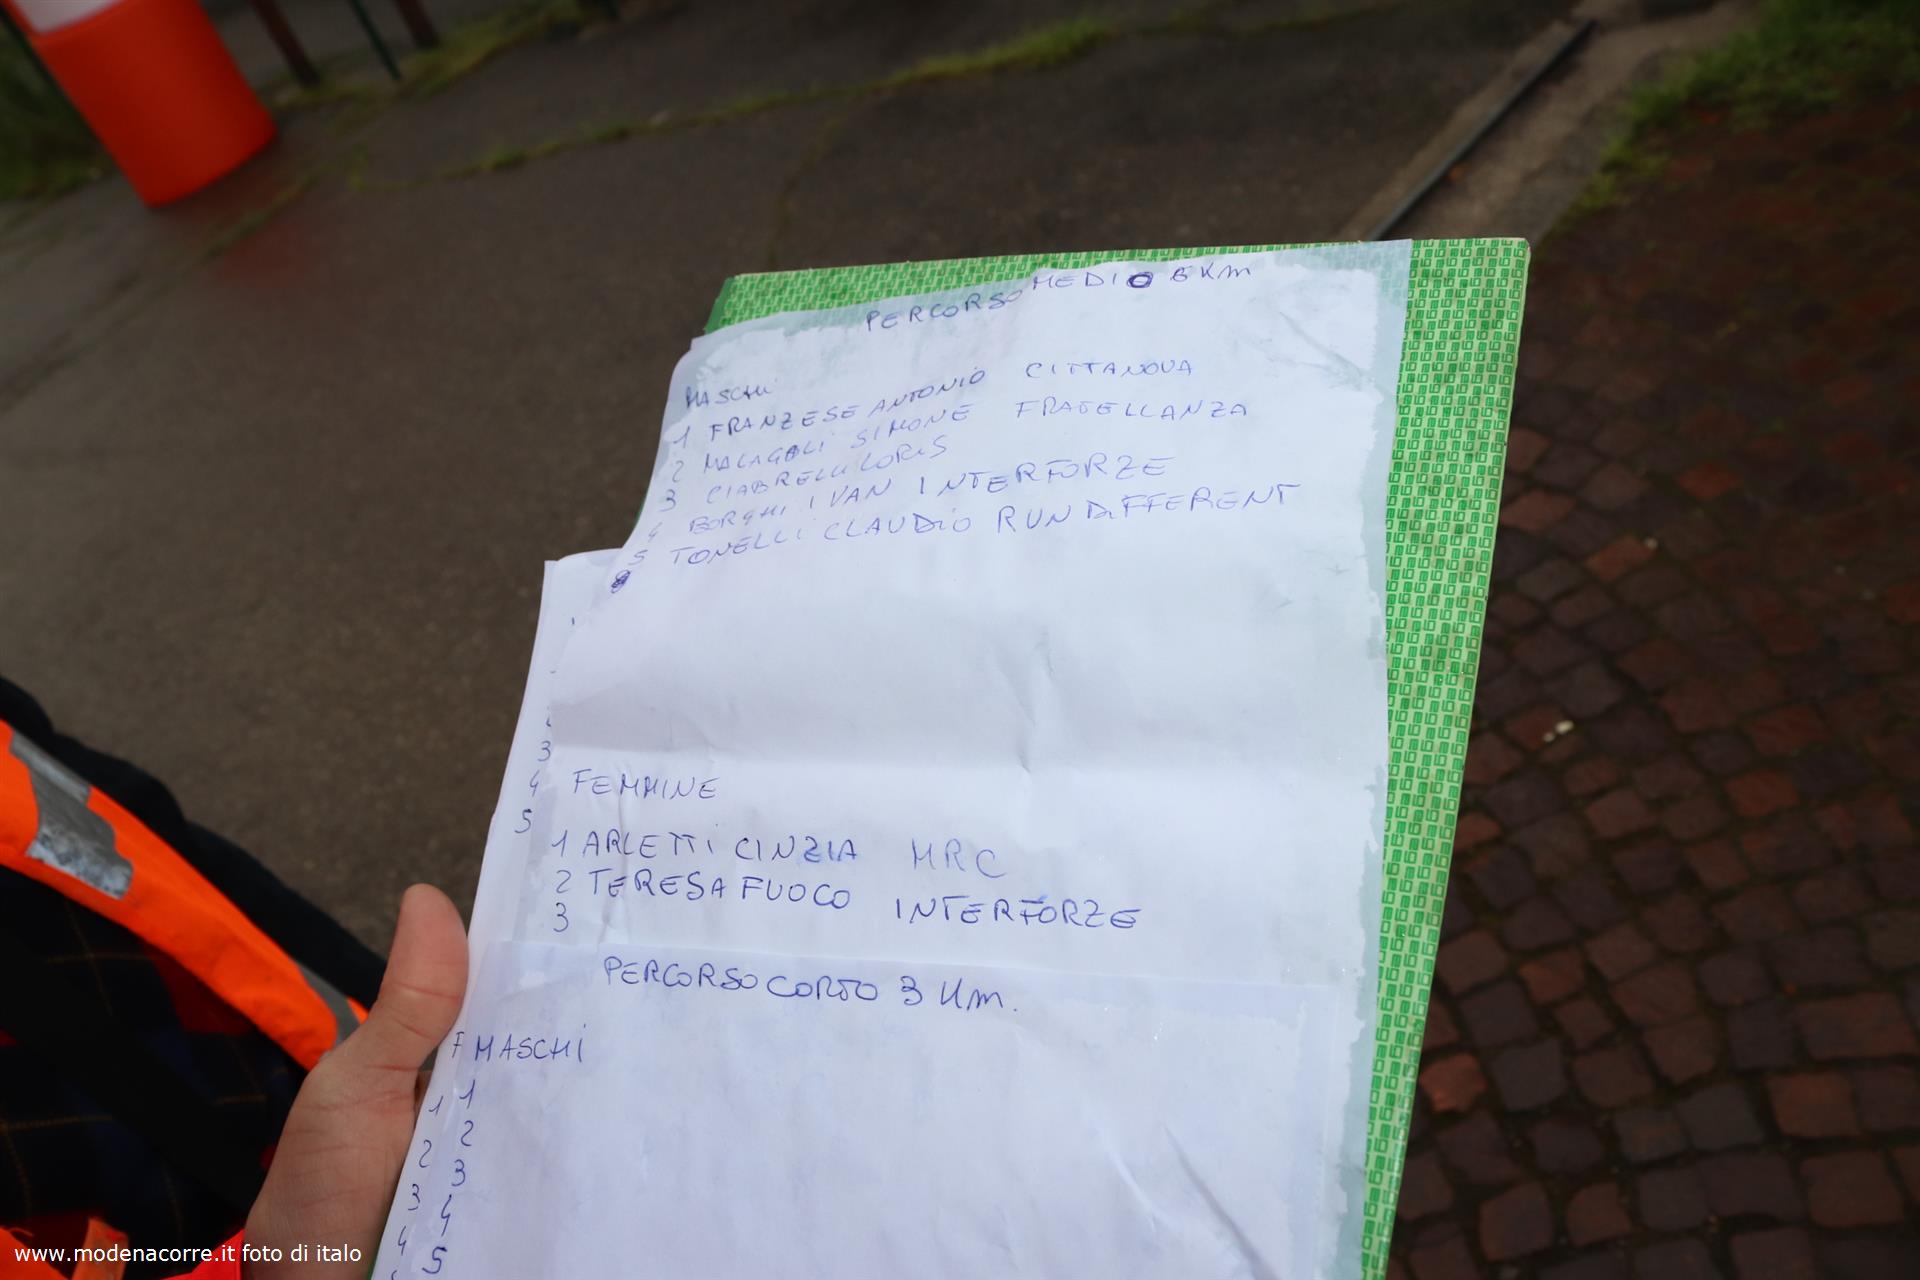 PERCORSO MEDIO 6 KM
MASCHI
1 FRANZESE ANTONIO CITTANOVA
2 MALAGOLI SIMONE FRATELLANZA
3 CIABRELLI LORIS
4 BORGHI IVAN INTERFORZE
5 TONELLI CLAUDIO RUN DIFFERENT
3
4
5
FEMMINE
1 ARLETTI CINZIA MRC
2 TERESA FUOCO INTERFORZE
3
PERCORSO CORTO 3 Km.
F
MASCHI
1
2
3
4
5
1
2
3
4
www.modenacorre.it foto di italo